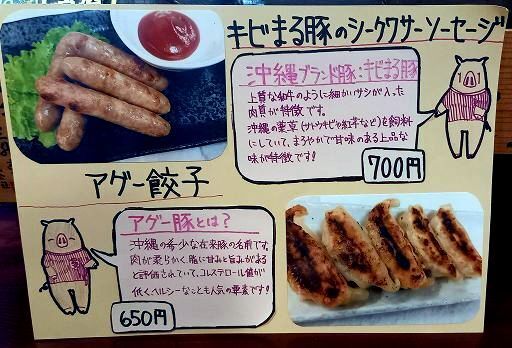 キビまる豚のシークワサーソーセージ
沖縄ブランド豚:キビまる豚
上質な和牛のように細かいサシが入った
肉質が特徴です。
沖縄の薬草(サトウキビや紅芋など)を飼料
にしていて、まろやかで甘味のある上品な
味が特徴です!
700円
アグー餃子
アグー豚とは?
沖縄の希少な在来豚の名前です。
肉が柔らかく、脂に甘みと旨みがあると
と評価されていて、コレステロール値が
低く、ヘルシーなことも人気の要素です!
650円